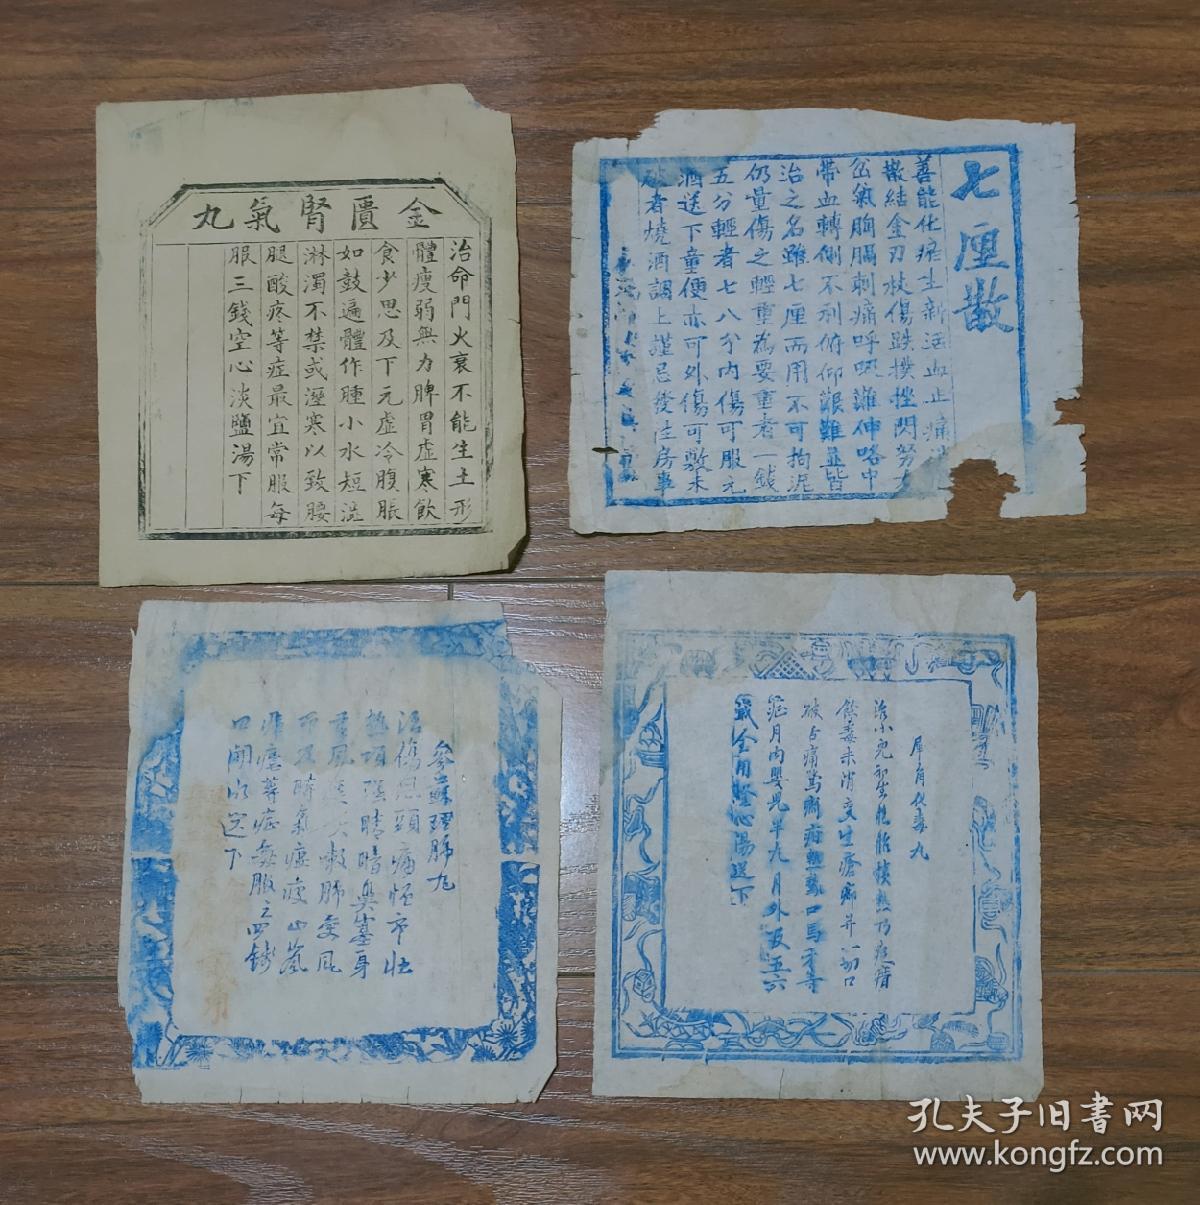 金匱腎氣丸
治命門火衰不能生土形
體瘦弱無力脾胃虛寒飲
食少思及下元虛冷腹脹
如鼓遍體作腫小水短澁
淋濁不禁或溼寒以致腰
腿酸疼等症最宜常服每
服三錢空心淡鹽湯下
七厘散
善能化瘀生新活血止痛
散結金刃杖傷跌撲挫閃努力
岔氣胸膈刺痛呼吸難伸咯中
帶血轉側不利俯仰艱難並皆
治之名雖七厘而用不可拘泥
仍量傷之輕重為要重者一錢
五分輕者七八分內傷可服元
酒送下童便亦可外傷可敷未
破者燒酒調上謹忌發性房事
參蘇理肺丸
治傷風頭痛惡寒壯
熱項強睛暗鼻塞身
重風痰咳嗽肺受風
而及時氣瘟疫山嵐
瘴等症每服三四錢
口開水送下
犀角化毒丸
治小兒
餘毒未消交生瘡癤并一切口
破舌痛
症月內嬰兒半丸月外及五六
歲全用燈心湯送下
孔夫子旧书网
www.kongfz.com